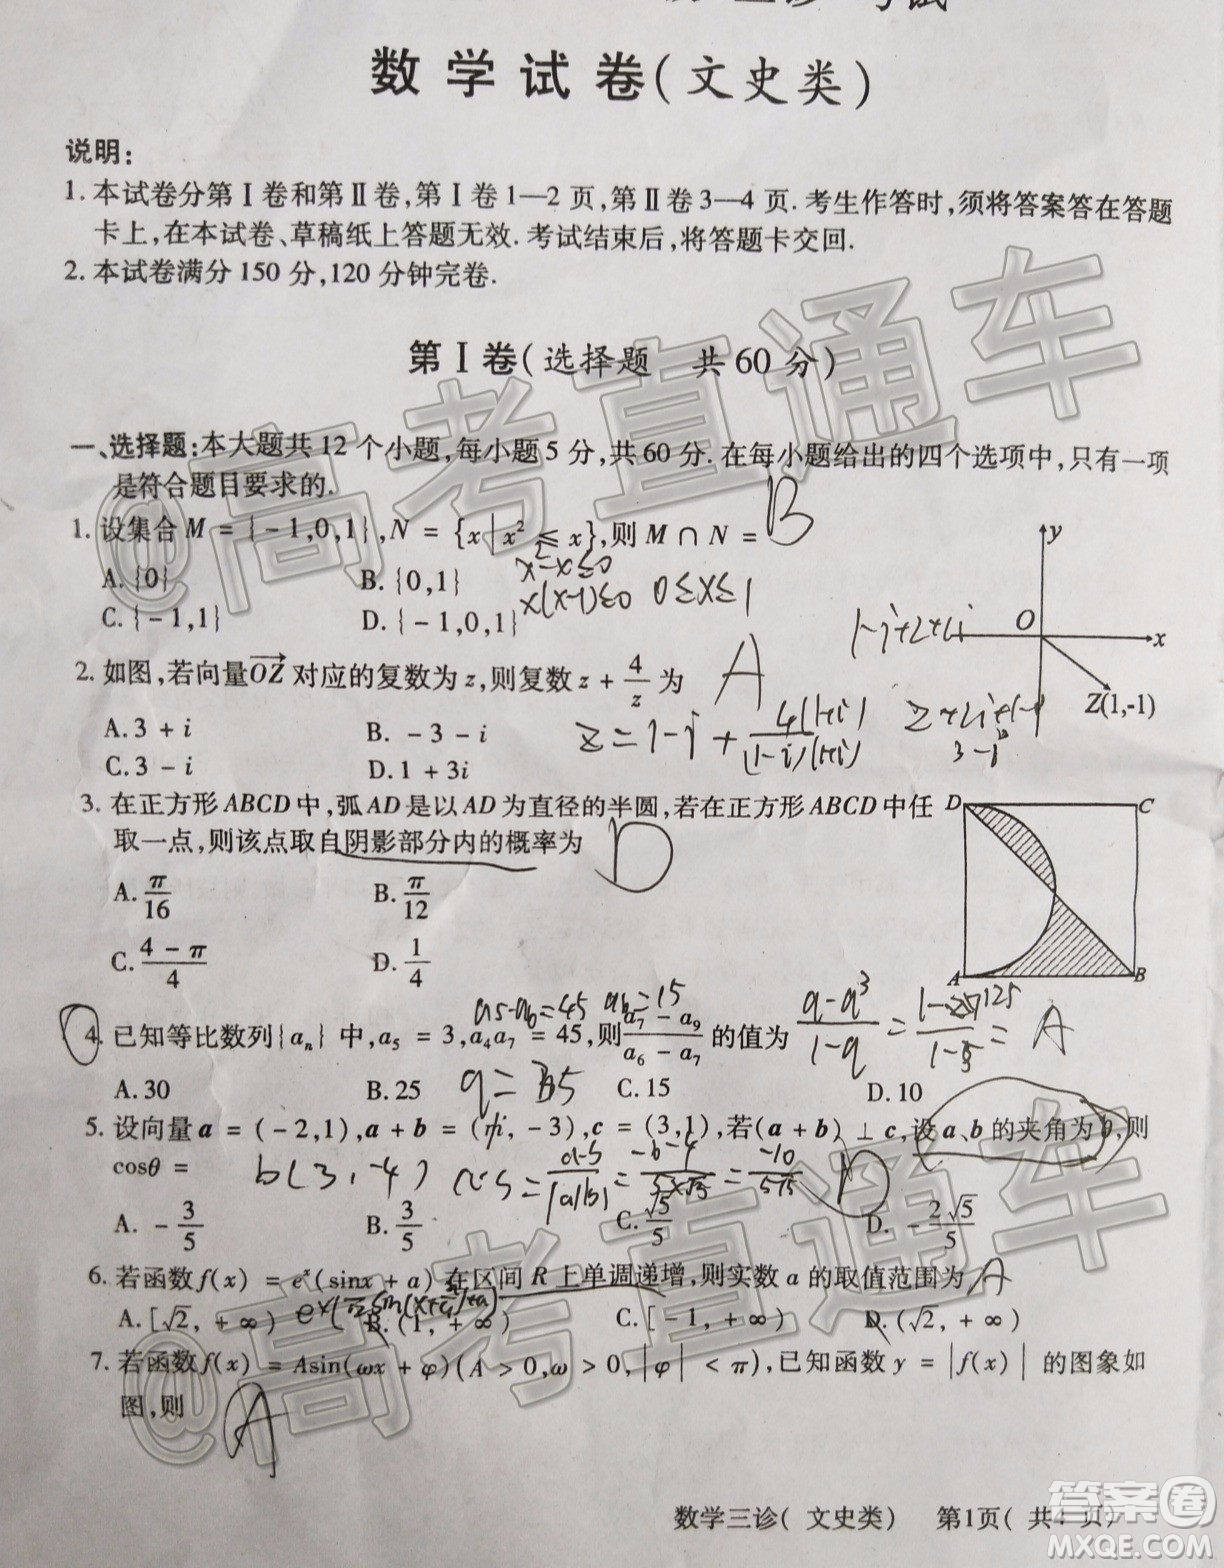 数学试卷(文史类)
说明:
1.本试卷分第Ⅰ卷和第Ⅱ卷,第Ⅰ卷1—2页,第Ⅱ卷3—4页.考生作答时,须将答案答在答题
卡上,在本试卷、草稿纸上答题无效.考试结束后,将答题卡交回.
2.本试卷满分150分,120分钟完卷.
第Ⅰ卷(选择题 共60分)
一、选择题:本大题共12个小题,每小题5分,共60分.在每小题给出的四个选项中,只有一项
是符合题目要求的.
1.设集合M = {-1,0,1},N = {x|x² ≤ x},则M∩N = B
A.{0} B.{0,1}
x²-x≤0
C.{-1,1} D.{-1,0,1}
x(x-1)≤0 0≤x≤1
y
O
x
Z(1,-1)
1-i+2+2i
2.如图,若向量OZ→对应的复数为z,则复数z + 4/z为 A
A.3 + i B. -3 - i
C.3 - i D.1 + 3i
z=1-i+4(1+i)/(1-i)(1+i)
3-i
3.在正方形ABCD中,弧AD是以AD为直径的半圆,若在正方形ABCD中任
取一点,则该点取自阴影部分内的概率为 D
A.π/16 B.π/12
C.(4-π)/4 D.1/4
D C
A B
a5·a6=45 a6=15
4.已知等比数列{aₙ}中,a₅ = 3,a₄a₇ = 45,则(a₇ - a₉)/(a₆ - a₇)的值为 (q-q³)/(1-q) = = A
A.30 B.25 C.15 D.10
5.设向量a = (-2,1),a + b = (m, -3),c = (3,1),若(a + b)⊥c,设a、b的夹角为θ,则
cosθ = b(3,-4) cos=a·b/|a||b|=-6-4/5×√5=-10/5√5 D
A. -3/5 B.3/5 C.√5/5 D. -2√5/5
6.若函数f(x) = eˣ(sinx + a)在区间R上单调递增,则实数a的取值范围为 A
A.[√2, +∞) B.(1, +∞) C.[-1, +∞) D.(√2, +∞)
7.若函数f(x) = Asin(ωx + φ)(A > 0,ω > 0,|φ| < π),已知函数y = |f(x)|的图象如
图,则 A
数学三诊(文史类) 第1页(共4页)
@高考直通车
@高考直通车
答案圈
MXQE.COM